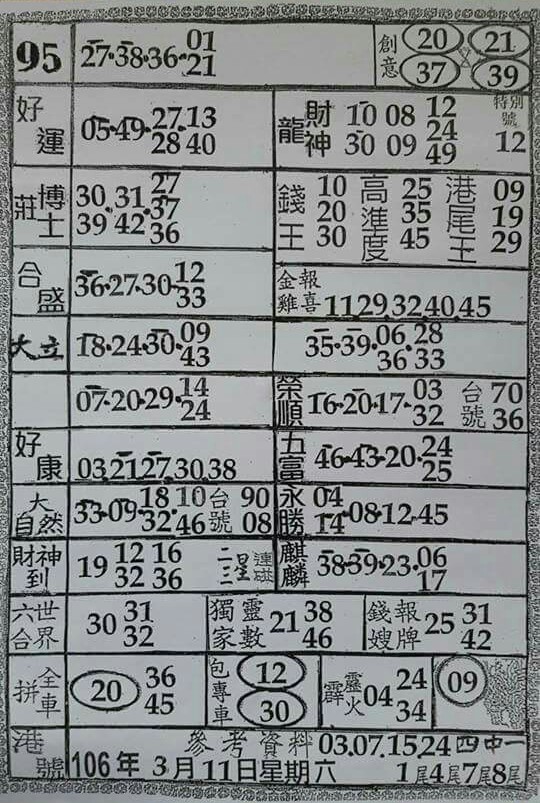 95 27·38·36·01 21 創意 20 21 37 39
好運 05·49·27·13 28 40
龍 財神 10 08 12 30 09 24 49 特別號 12
莊博士 30 31 27 39·42·37 36
錢王 10 20 30 高準度 25 35 45 港尾王 09 19 29
合盛 36·27·30·12 33
金雞報喜 11.29.32.40.45
大立 18·24·30·09 43
35·39·06·28 36 33
07·20·29·14 24
榮順 16·20·17·03 32 台號 70 36
好康 03.21.27.30.38
五富 46·43·20·24 25
大自然 33·09·18 10 32 46 台號 90 08
永勝 04 14·08·12·45
財神到 19 12 16 32 36 二三星連碰
麒麟 38·39·23·06 17
六合世界 30 31 32
獨家靈數 21 38 46
錢嫂報牌 25 31 42
拼全車 20 36 45
包專車 12 30
霹靂火 04 24 34
09
港號 參考資料 03.07.15.24 四中一
106年 3月11日星期六 1尾4尾7尾8尾